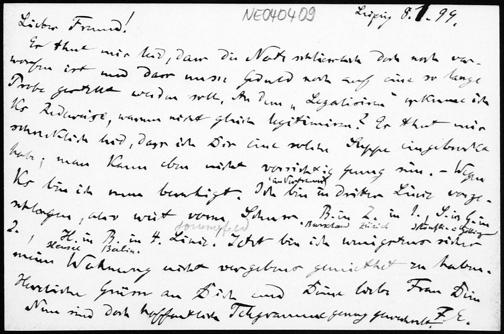 NE040409
Leipzig 8.1.99.
Lieber Freund!
Es thut mir leid, dass die Notiz schliesslich doch noch ver-
worfen ist und dass unsere Geduld noch auf eine so lange
Probe gestellt werden soll. An dem „Legalisiren“ erkenne ich
Ks Redeweise, warum nicht gleich legitimiren? Es thut mir
schrecklich leid, dass ich Dir eine solche Suppe eingebrockt
habe; man kann eben nicht vorsichtig genug sein. – Wegen
Ko bin ich nun beruhigt. Ich bin in dritter Linie vorge-
schlagen, aber weit vom Schuss. B. in Z. in 1., S. in G. in
Burkhard Zürich
2. H. in B. in 4. Linie. Jetzt bin ich wenigstens sicher
Hensel Berlin
meine Wohnung nicht vergebens gemiethet zu haben.
Herzliche Grüsse an Dich und Deine liebe Frau Dein
Nun sind doch hoffentlich Telegramme genug gewechselt? F. E.